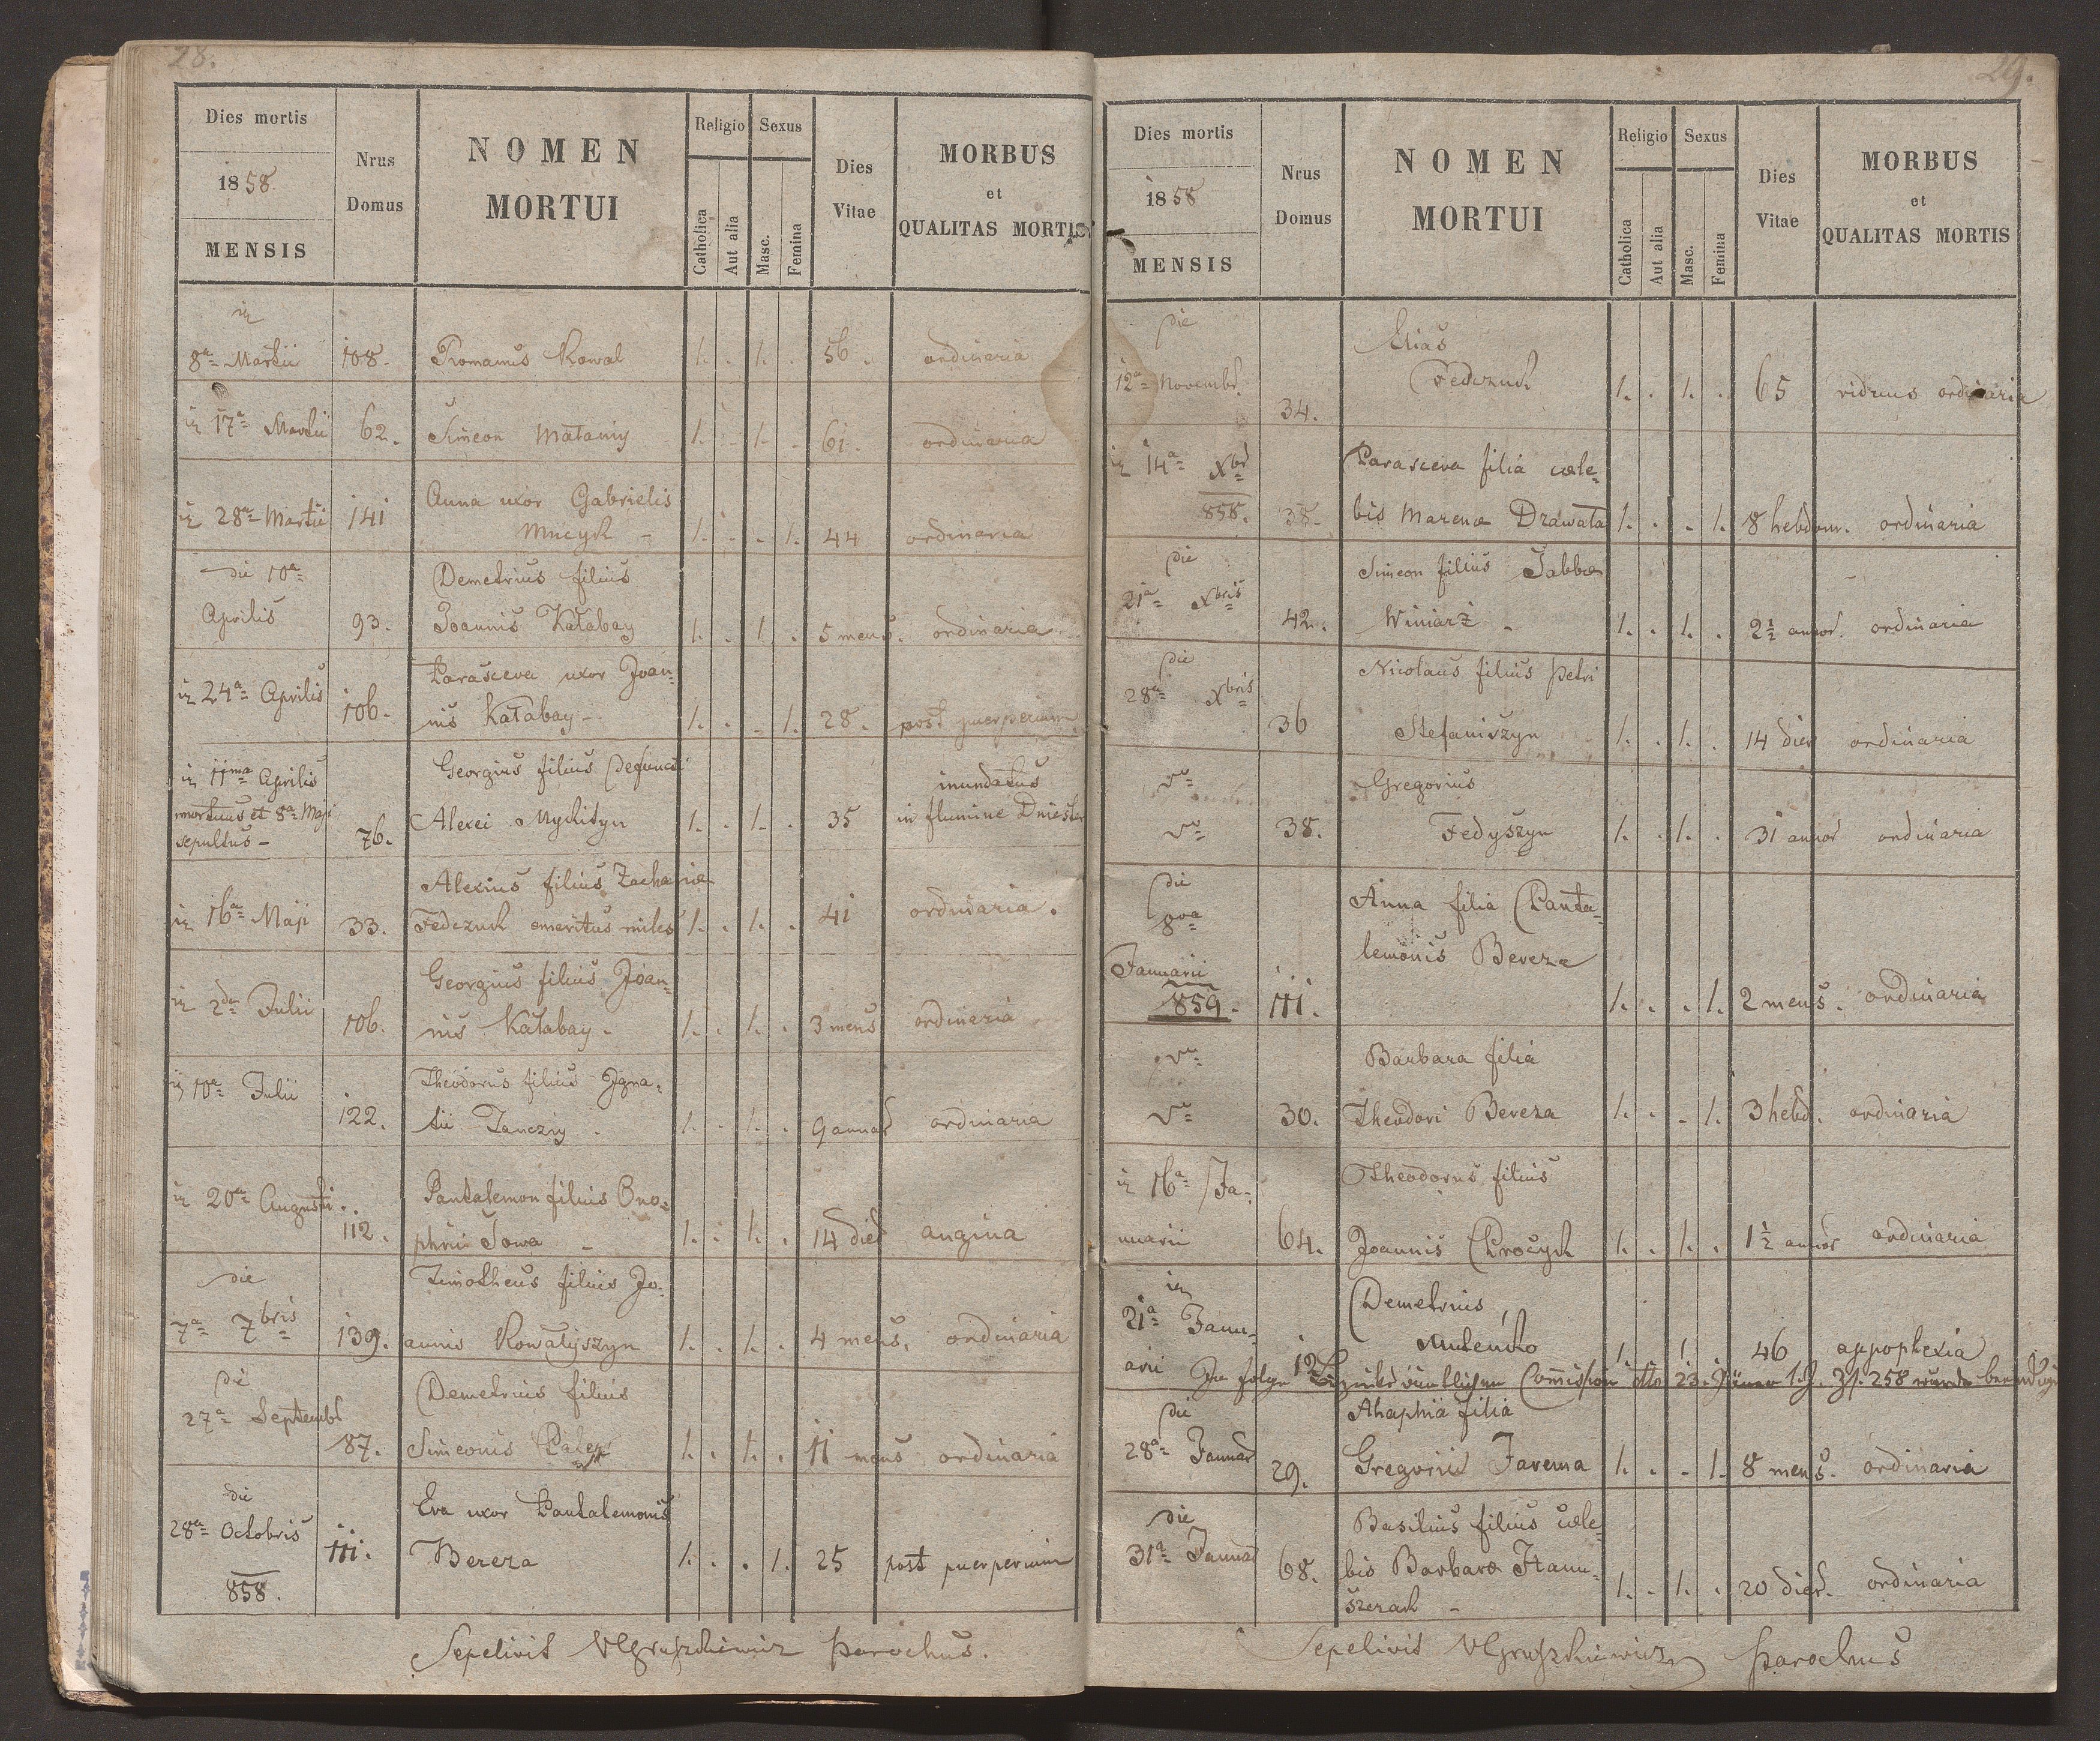 28.
Dies mortis
1858
MENSIS
Nrus
Domus
NOMEN
MORTUI
Religio
Sexus
Catholica
Aut alia
Masc.
Femina
Dies
Vitae
MORBUS
et
QUALITAS MORTIS
8a Martii 108. Romanus Kowal 1. . 1. . 56. ordinaria
17a Martii 62. Simeon Matawiy 1. . 1. . 61. ordinaria
Anna uxor Gabrielis
28a Martii 141 1. . . 1. 44 ordinaria
die 10a Demetrius filius
Aprilis 93. Joannis Kałabay 1. . 1. . 5 mens. ordinaria
Parasceva uxor Joan-
24a Aprilis 106. nis Kałabay - 1. . . 1. 28. post puerperium
11ma Aprilis Georgius filius Defuncti inundatus
mortuus et 8a Maji Alexei Mykityn 1. . 1. . 35 in flumine Dniester
sepultus - 76.
Alexius filius Zachariae
16a Maji 33. Fedczuk emeritus miles 1. . 1. . 41 ordinaria.
Georgius filius Joan-
2da Julii 106. nis Kałabay - 1. . 1. . 3 mens ordinaria
Theodorus filius Igna-
10a Julii 122. tii Janeziy - 1. . 1. . 9 annor ordinaria
20a Augusti Pantalemon filius Ono-
112. phrii Sowa - 1. . 1. . 14 dier angina
die Timotheus filius Jo-
7a 7bris 139. annis Kowalyszyn 1. . 1. . 4 mens. ordinaria
die Demetrius filius
27a Septembr 87. Simeonis 1. . 1. . 11 mens ordinaria
die Eva uxor Pantalemonis
28a Octobris 111. Bereza 1. . . 1. 25 post puerperium
858.
Sepelivit Parochus.
29.
Dies mortis
1858
MENSIS
Nrus
Domus
NOMEN
MORTUI
Religio
Sexus
Catholica
Aut alia
Masc.
Femina
Dies
Vitae
MORBUS
et
QUALITAS MORTIS
die Elias
12a Novembr. 34. Fedczuk 1. . 1. . 65 viduus ordinaria
14a Xbr Parasceva filia caele-
858. 38. bis Marenae Drawata 1. . . 1. 8 hebdom. ordinaria
die Simeon filius Sabbae
21a Xbris 42. Winiarż - 1. . 1. . 2½ annor. ordinaria
die Nicolaus filius Petri
28a Xbris 36 Stefaniszyn 1. . 1. . 14 dier ordinaria
Gregorius
38. Fedyszyn 1. . 1. . 31 annor ordinaria
die Anna filia Panta-
8va lemonis Bereza
Januarii
859. 111. 1. . . 1. 2 mens. ordinaria
Barbara filia
30. Theodori Bereza 1. . . 1. 3 hebd. ordinaria
16a Ja- Theodorus filius
nuarii 64. Joannis Procyk 1. . 1. . 1½ annor ordinaria
21a Janu- Demetrius
arii 12 1. 1. 46 appoplexia
Zu folge Bezirksämtlichen Commission dtto 23. Jäner l.J. Zl. 258 wurde
die Ahaphia filia
28a Januar 29. Gregorii Javerna 1. . . 1. 8 mens. ordinaria
die Basilius filius caele-
31a Januar 68. bis Barbarae Hanu-
szczak - 1. . 1. . 20 dier. ordinaria
Sepelivit Parochus